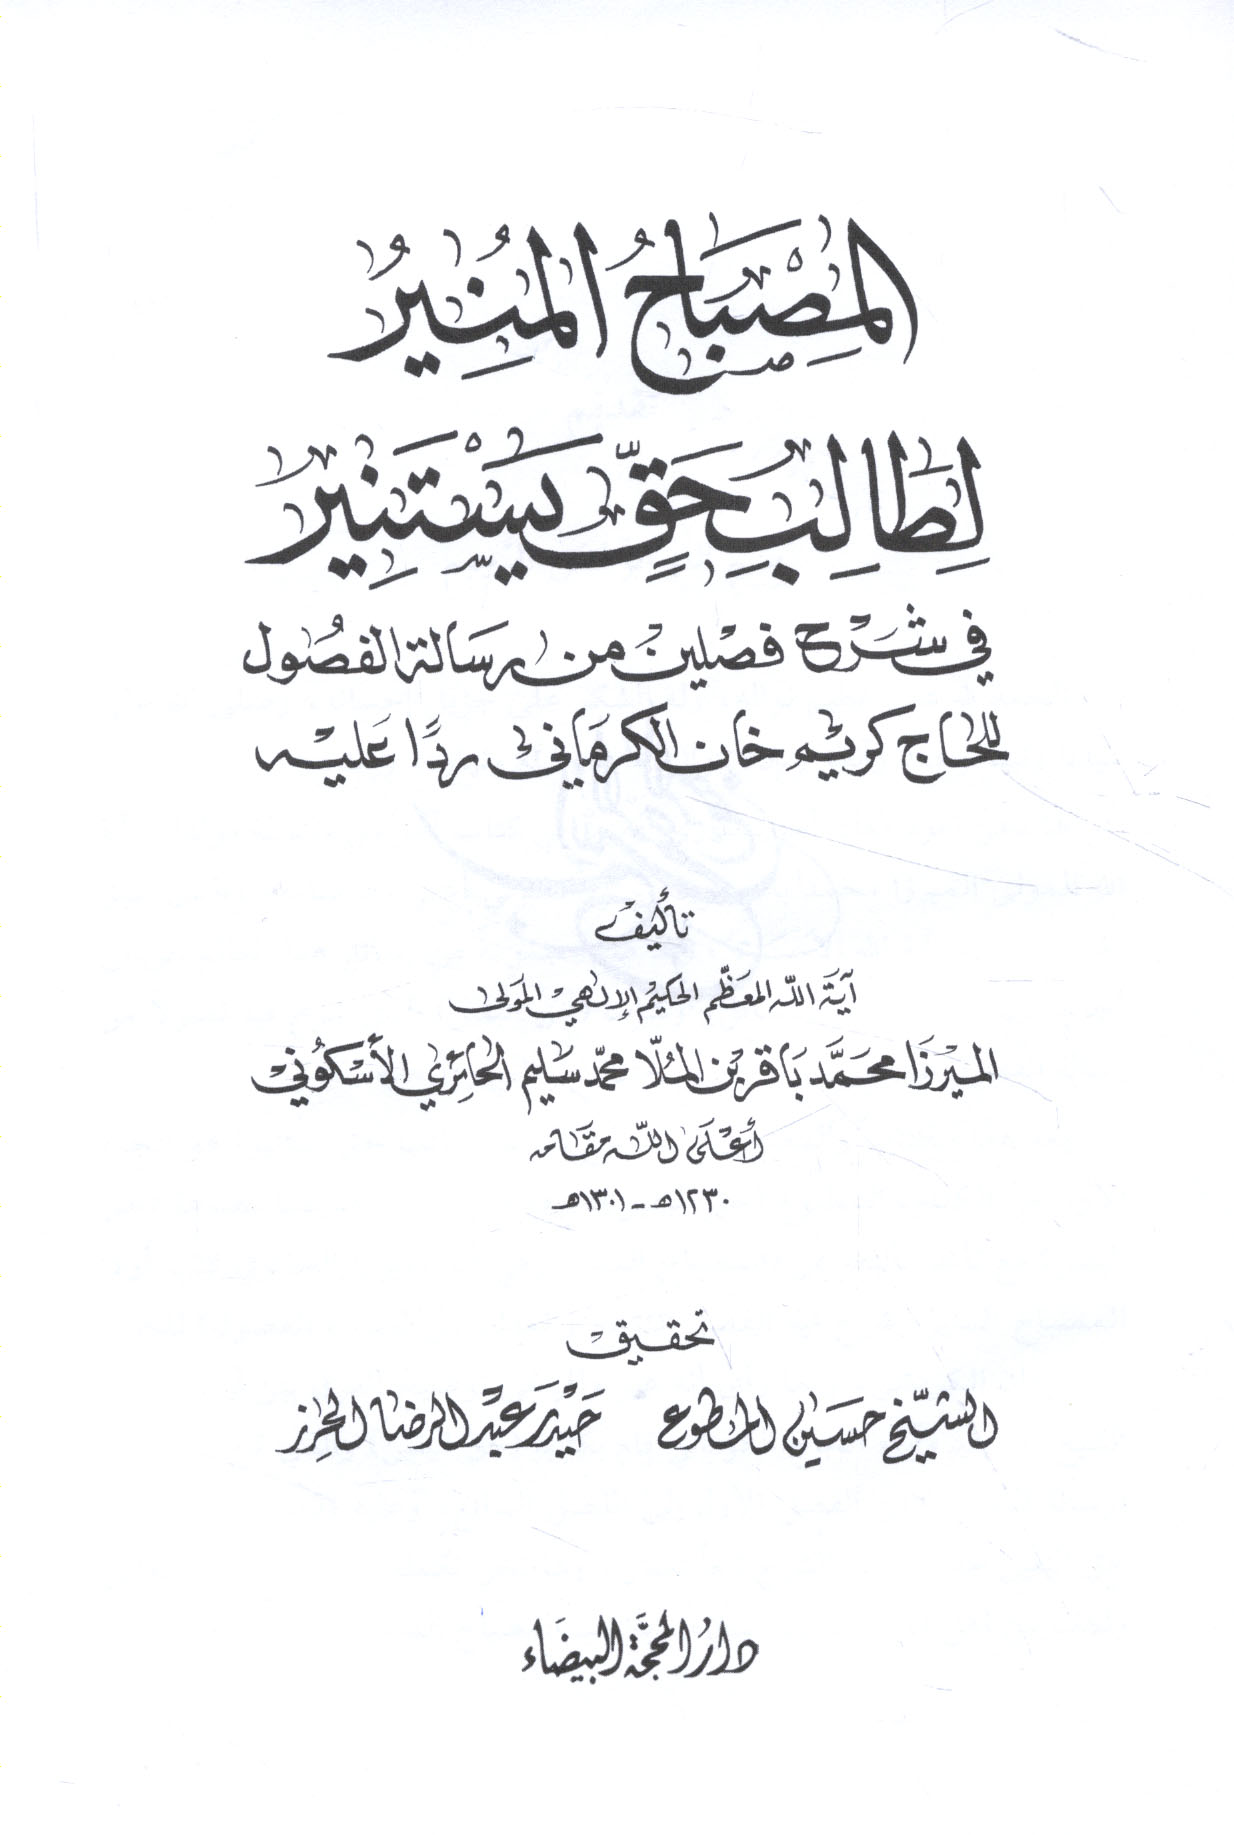 المِصْبَاحُ المُنِيرُ
لِطَالِبِ حَقٍّ يَسْتَنِيرُ
في شَرْح فصْلين من رسَالة الفصُول
للحَاج كريم خان الكرمَاني ردًا عَليه
تأليف
آيَة الله المعَظّم الحكيم الإلهي المَولى
الميْرزَا محَمَّد بَاقر بْن المُلّا محمّد سَليم الحَائِري الأسْكوُئي
أعْلَى الله مقَامه
١٢٣٠هـ - ١٣٠١هـ
تحقيق
الشّيْخ حسَين المطوع حَيْدَر عَبْد الرضا الحِرز
دَارُ المحَجَّة البيضَاء